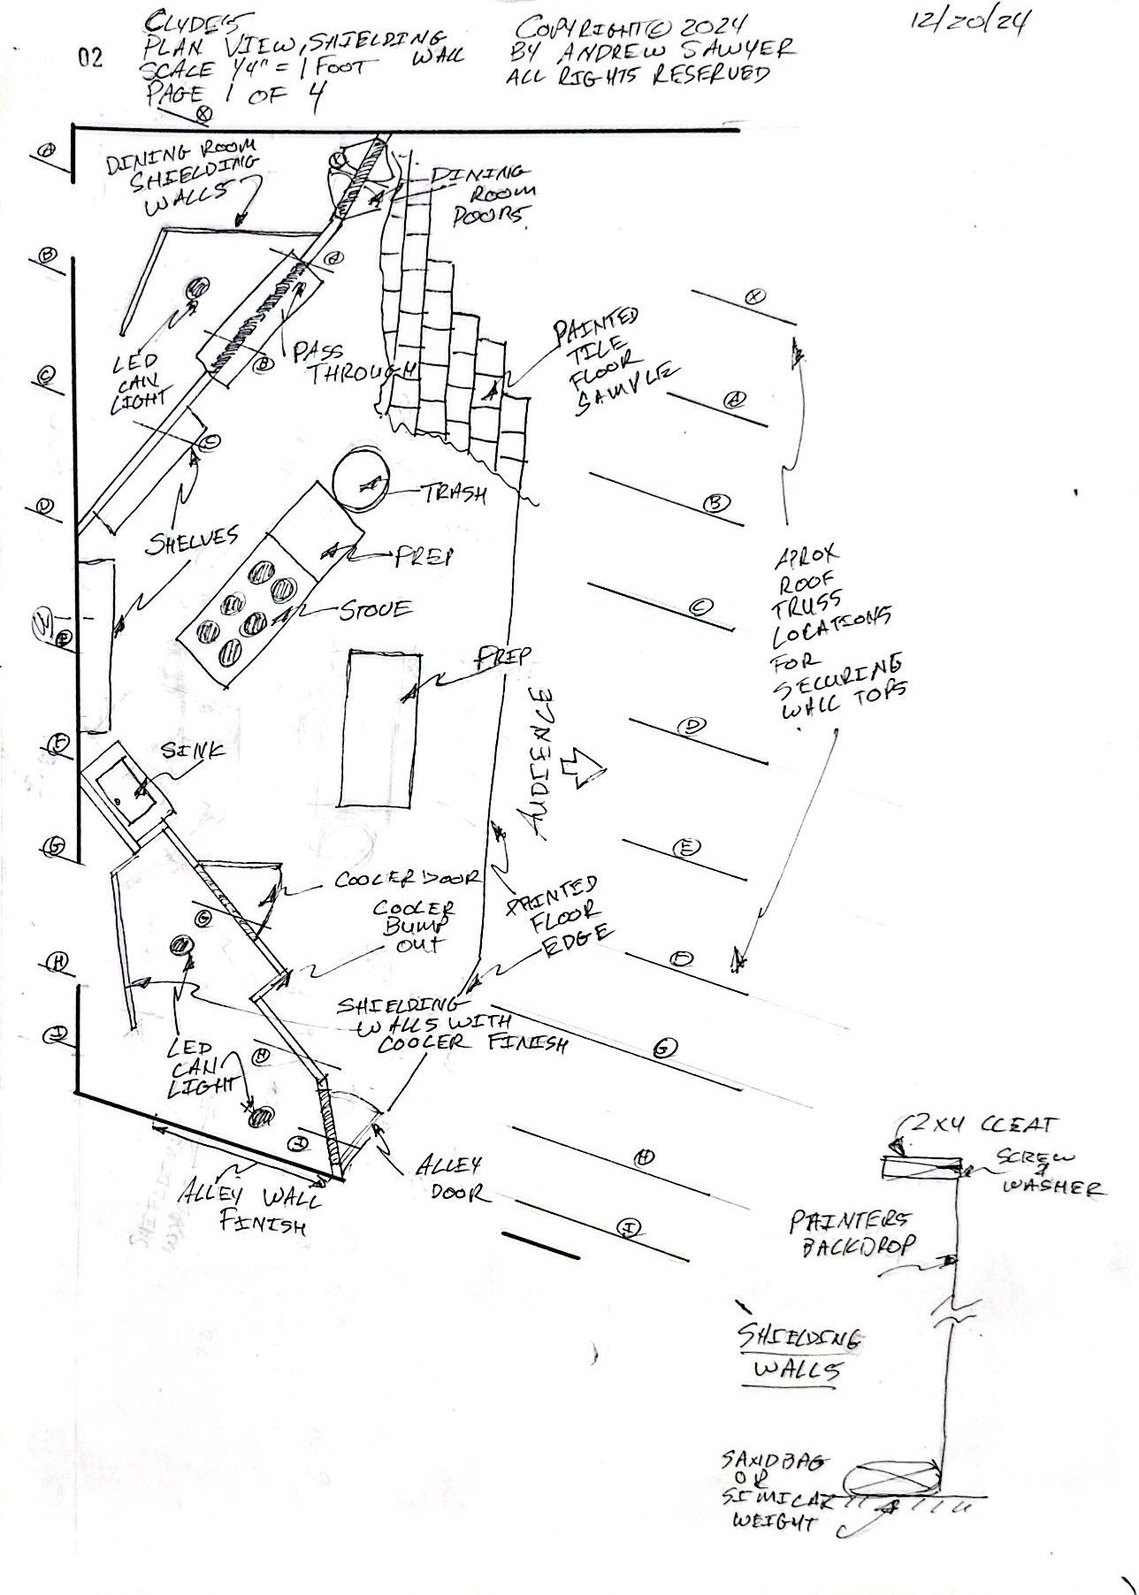 02
CLYDE'S
PLAN VIEW, SHIELDING WALL
SCALE 1/4" = 1 FOOT
PAGE 1 OF 4
COPYRIGHT © 2024
BY ANDREW SAWYER
ALL RIGHTS RESERVED
12/20/24
X
A
DINING ROOM
SHIELDING
WALLS
DINING
ROOM
DOORS.
B
A
X
LED
CAN
LIGHT
PASS
THROUGH
B
PAINTED
TILE
FLOOR
SAMPLE
A
C
C
B
D
TRASH
SHELVES
PREP
STOVE
APROX
ROOF
TRUSS
LOCATIONS
FOR
SECURING
WALL TOPS
C
E
PREP
D
F
SINK
AUDIENCE
G
E
COOLER DOOR
COOLER
BUMP
OUT
PAINTED
FLOOR
EDGE
G
H
F
SHIELDING
WALLS WITH
COOLER FINISH
I
LED
CAN
LIGHT
H
G
I
ALLEY
DOOR
H
ALLEY WALL
FINISH
I
2X4 CLEAT
SCREW
&
WASHER
PAINTERS
BACKDROP
SHIELDING
WALLS
SANDBAG
OR
SIMILAR
WEIGHT